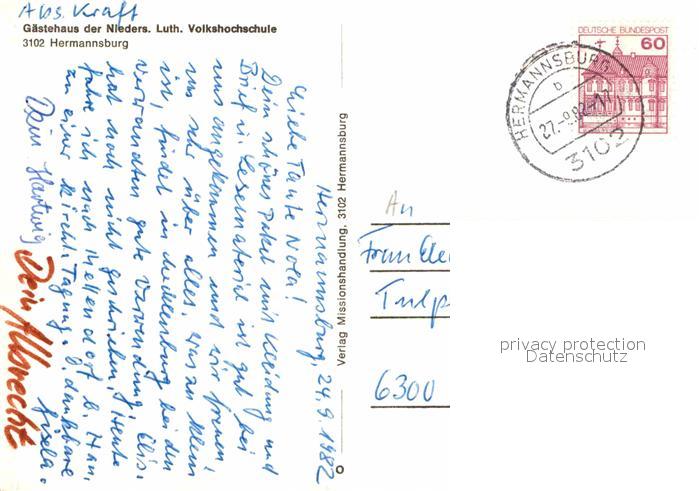 Abs. Kraft
Gästehaus der Nieders. Luth. Volkshochschule
3102 Hermannsburg
Hermannsburg, 24.9.1982
Liebe Tante Nora!
Dein schönes Paket mit Kleidung und
Brief u. Lesematerial ist gut bei
uns angekommen und wir freuen
uns sehr über alles. Was zu klein
ist, findet in Mecklenburg bei den
Verwandten gute Verwendung.
hat noch nicht geschrieben. Heute
fahre ich nach b. Han.
zu einer kirchl. Tagung. D. dankbare
Gisela.
Dein Hartwig
Dein Albrecht
Verlag Missionshandlung, 3102 Hermannsburg
DEUTSCHE BUNDESPOST
60
HERMANNSBURG
b
27.-9.82-17
3102
An
Frau
Tulp
6300
privacy protection
Datenschutz